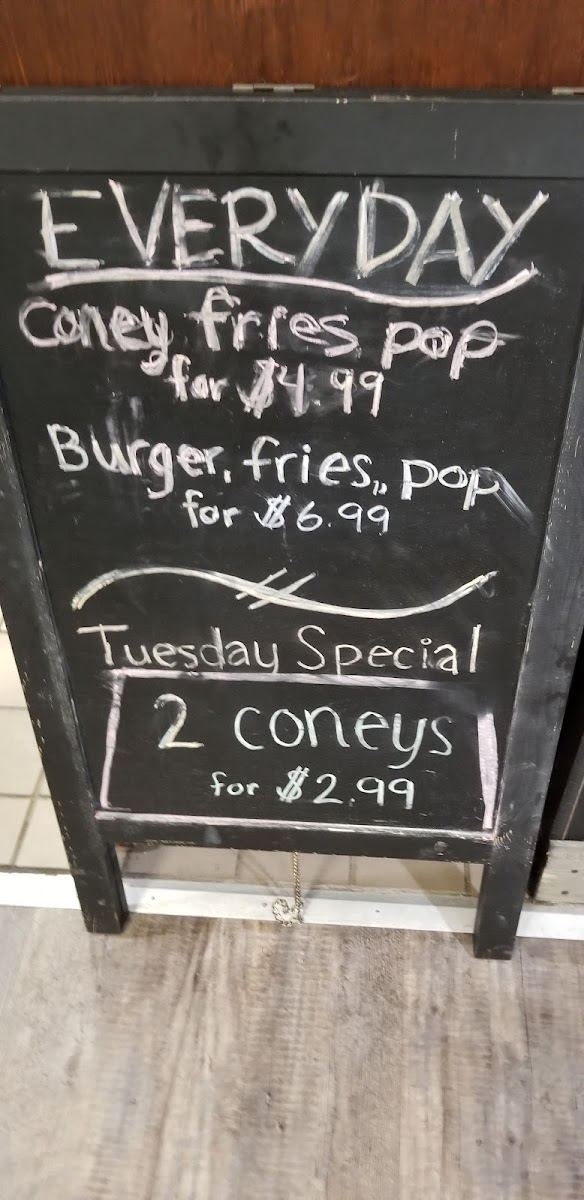 EVERYDAY
Coney fries pop
for $4.99
Burger, fries,, pop
for $6.99
Tuesday Special
2 coneys
for $2.99